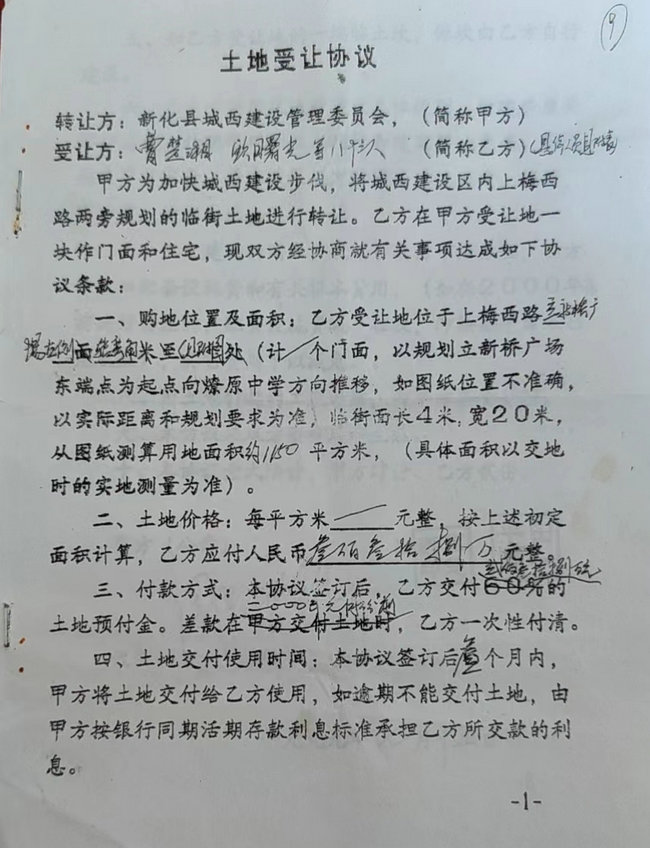 9
土地受让协议
转让方：新化县城西建设管理委员会，（简称甲方）
受让方：曹楚湘 欧曙光等八千人 （简称乙方）
甲方为加快城西建设步伐，将城西建设区内上梅西
路两旁规划的临街土地进行转让。乙方在甲方受让地一
块作门面和住宅，现双方经协商就有关事项达成如下协
议条款：
一、购地位置及面积：乙方受让地位于上梅西路立新桥广
场左侧面 米至 处（计 个门面，以规划立新桥广场
东端点为起点向燎原中学方向推移，如图纸位置不准确，
以实际距离和规划要求为准，临街面长4米，宽20米，
从图纸测算用地面积约1150平方米，（具体面积以交地
时的实地测量为准）。
二、土地价格：每平方米 元整，按上述初定
面积计算，乙方应付人民币叁佰叁拾捌万元整。
三、付款方式：本协议签订后，乙方交付60%的
土地预付金。差款在甲方交付土地时，乙方一次性付清。
四、土地交付使用时间：本协议签订后壹个月内，
甲方将土地交付给乙方使用，如逾期不能交付土地，由
甲方按银行同期活期存款利息标准承担乙方所交款的利
息。
-1-